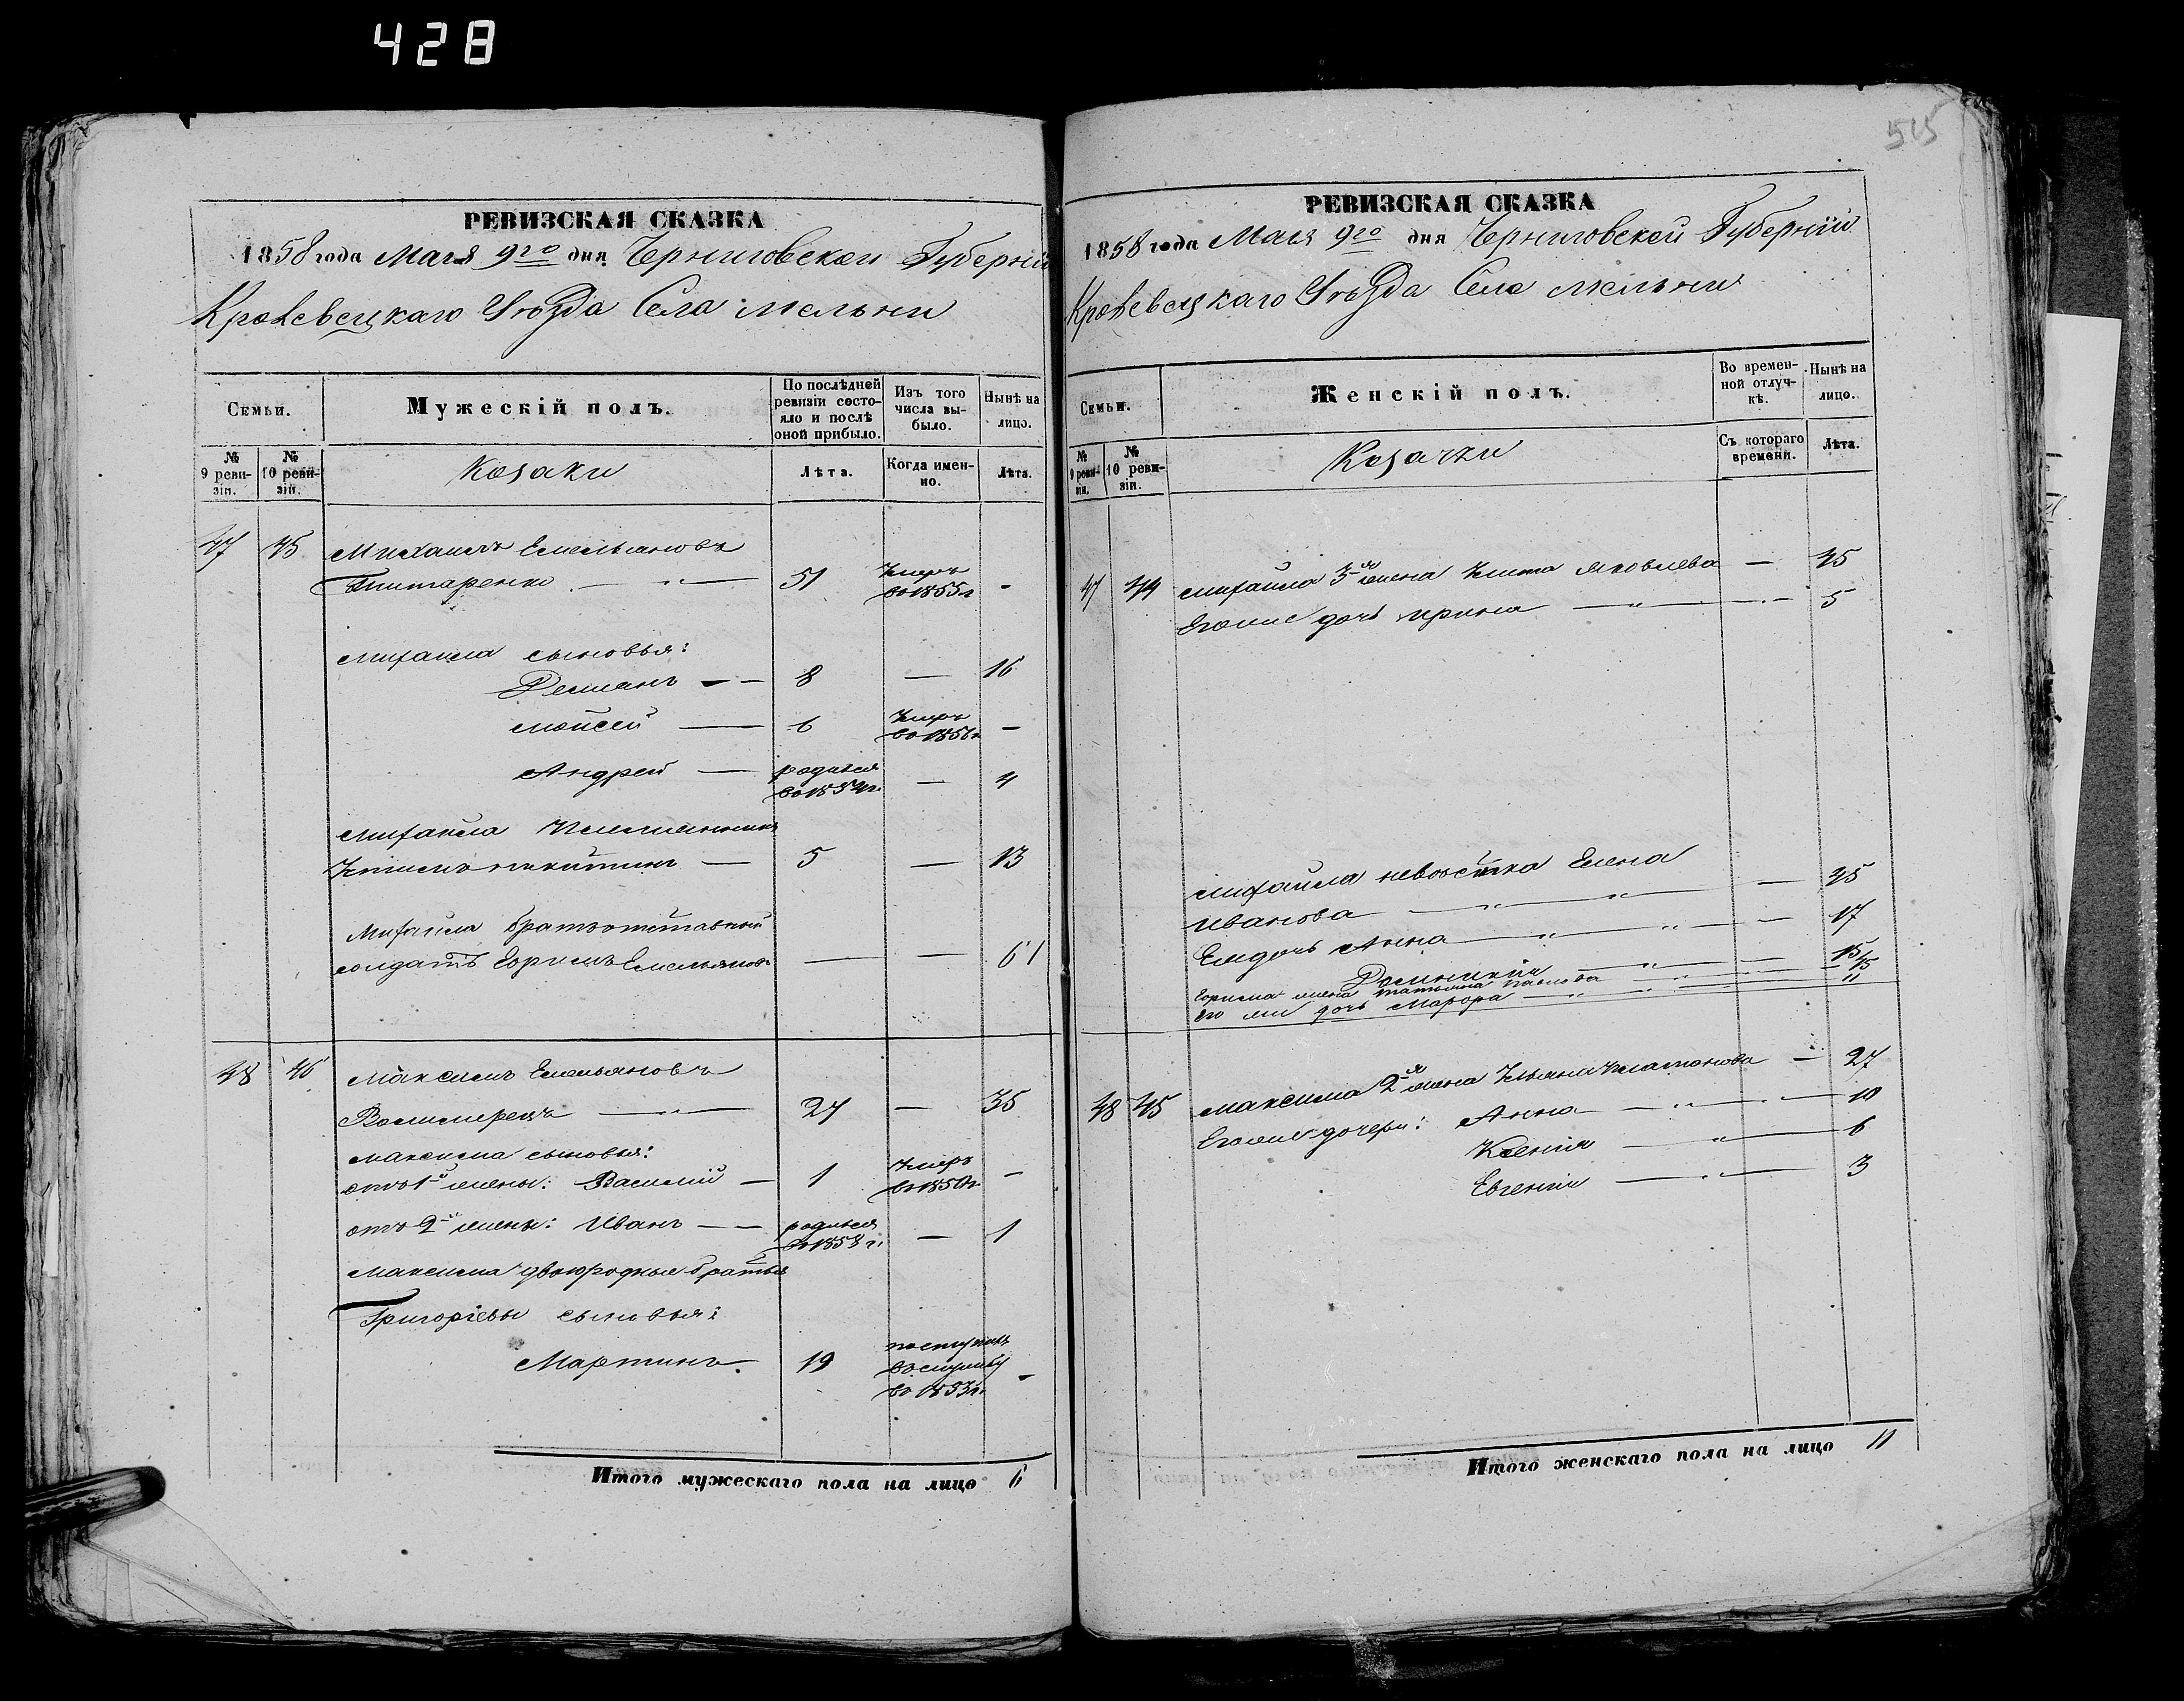 428
515
РЕВИЗСКАЯ СКАЗКА
1858 года Мая 9го дня Черниговской Губерніи
Кролевецкаго Уѣзда Села Мельни
Семьи.
Мужескій полъ.
По послѣдней ревизіи состояло и послѣ оной прибыло.
Изъ того числа выбыло.
Нынѣ на лицо.
№ 9 ревизіи.
№ 10 ревизіи.
Козаки
Лѣта.
Когда именно.
Лѣта.
47 45 Михаилъ Емельяновъ
Титаренко — 51 Умеръ въ 1855 г -
Михаила сыновья:
Деміанъ — 8 — 16
Моисей — 6 Умеръ въ 1856 г -
Андрей — родился въ 1854 г. — 4
Михаила Племянникъ
Никитинъ — 5 — 13
Михаила братъ отставный
солдатъ Емельяновъ — — 61
48 46 Максимъ Емельяновъ
— 27 — 35
Максима сыновья:
отъ 1й жены: Василій — 1 Умеръ въ 1850 г. -
отъ 2й жены: Иванъ — родился въ 1858 г. — 1
Максима двоюродные братья
Григоріевы сыновья:
Мартинъ 19 поступилъ въ службу въ 1853 г. -
Итого мужескаго пола на лицо 6
РЕВИЗСКАЯ СКАЗКА
1858 года Мая 9го дня Черниговской Губерніи
Кролевецкаго Уѣзда Села Мельни
Семьи.
Женскій полъ.
Во временной отлучкѣ.
Нынѣ на лицо.
№ 9 ревизіи.
№ 10 ревизіи.
Козачки
Съ котораго времени.
Лѣта.
47 44 Михаила 3я жена Яковлева — 45
Его же дочь Ирина — 5
Михаила невѣстка Елена
Иванова — 45
Ея дочь Анна — 17
Домникія — 15
жена Татьяна Павлова — 45
Его же дочь — 11
48 45 Максима 2я жена Ульяна Платонова — 27
Его же дочери: Анна — 10
Ксенія — 6
Евгенія — 3
Итого женскаго пола на лицо 11